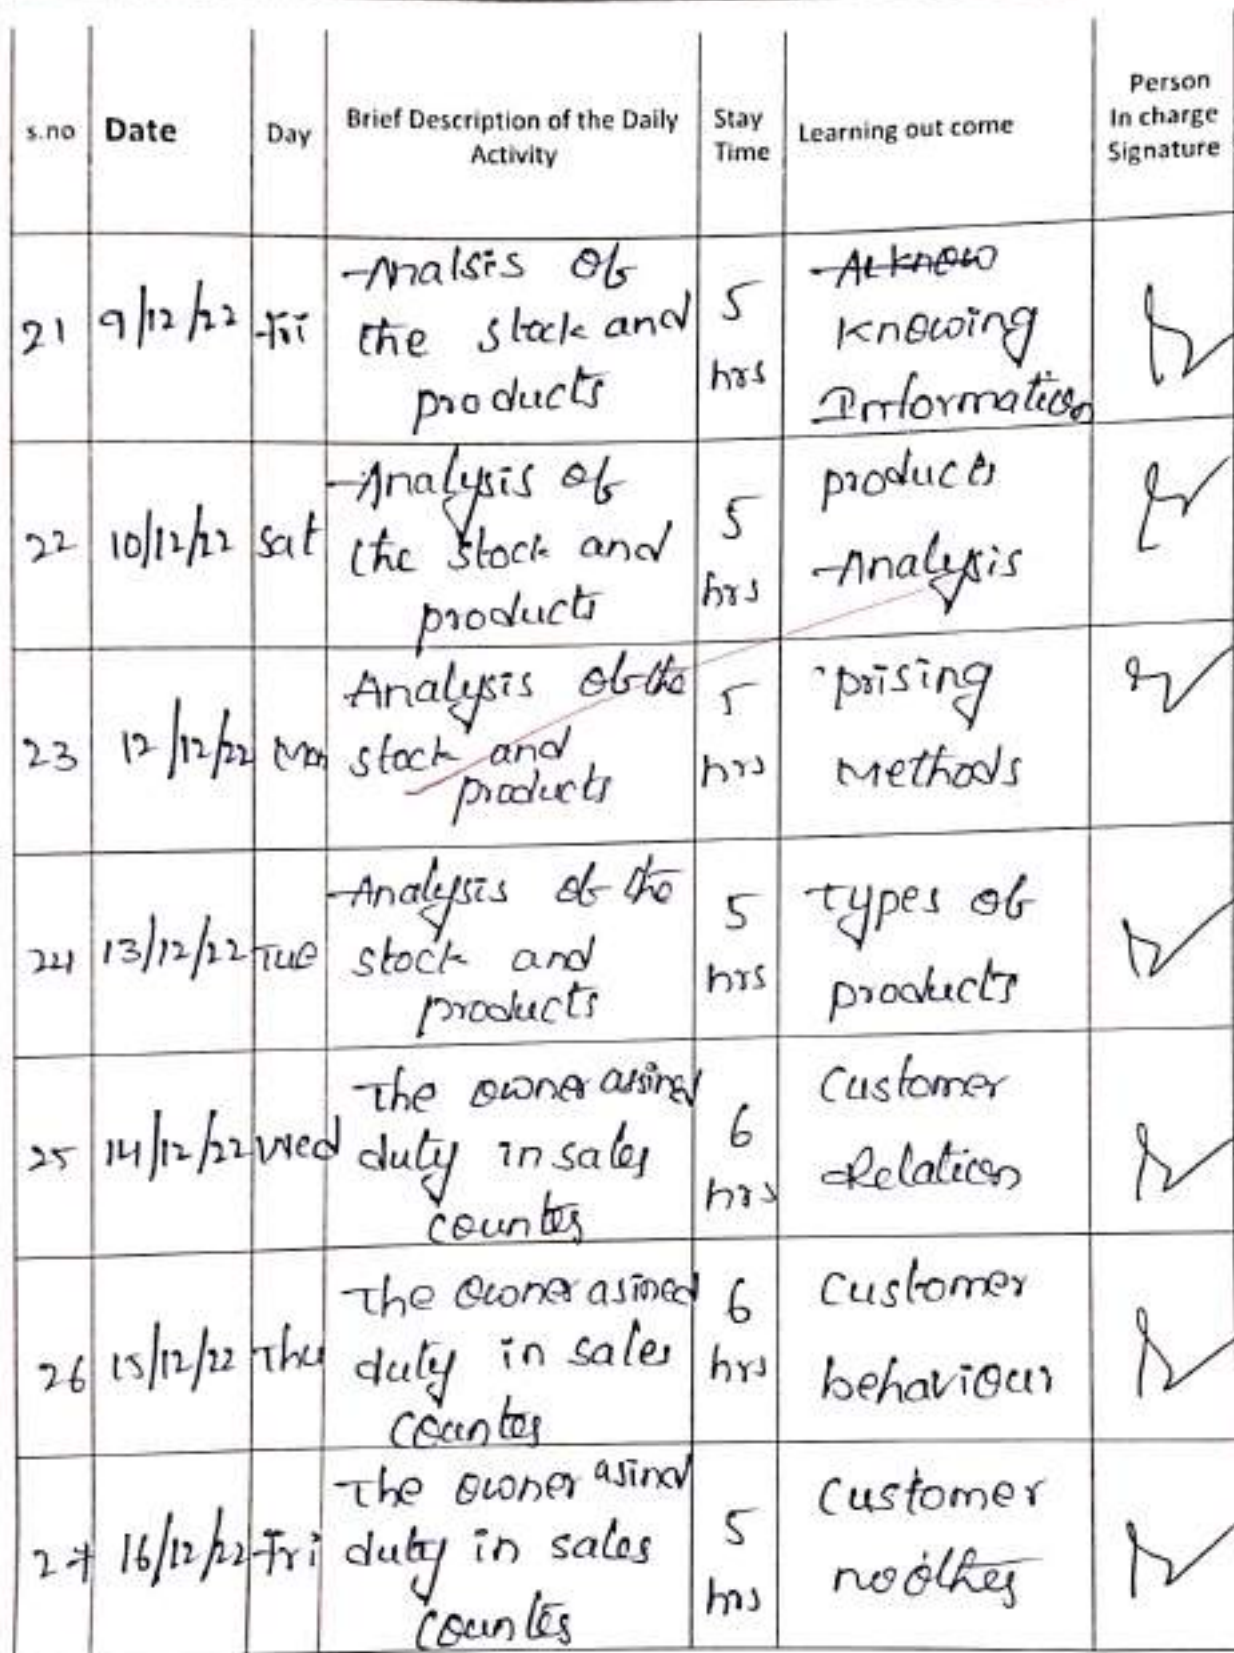 s.no Date Day Brief Description of the Daily Activity Stay Time Learning out come Person In charge Signature
21 9/12/22 Fri Analsis of the stock and products 5 hrs knowing Information
22 10/12/22 Sat Analysis of the stock and products 5 hrs products Analysis
23 12/12/22 Mon Analysis of the stock and products 5 hrs prising methods
24 13/12/22 Tue Analysis of the stock and products 5 hrs Types of products
25 14/12/22 Wed The owner assined duty in sales countes 6 hrs Customer Relation
26 15/12/22 Thu The owner asined duty in sales countes 6 hrs Customer behaviour
27 16/12/22 Fri The owner asined duty in sales countes 5 hrs Customer